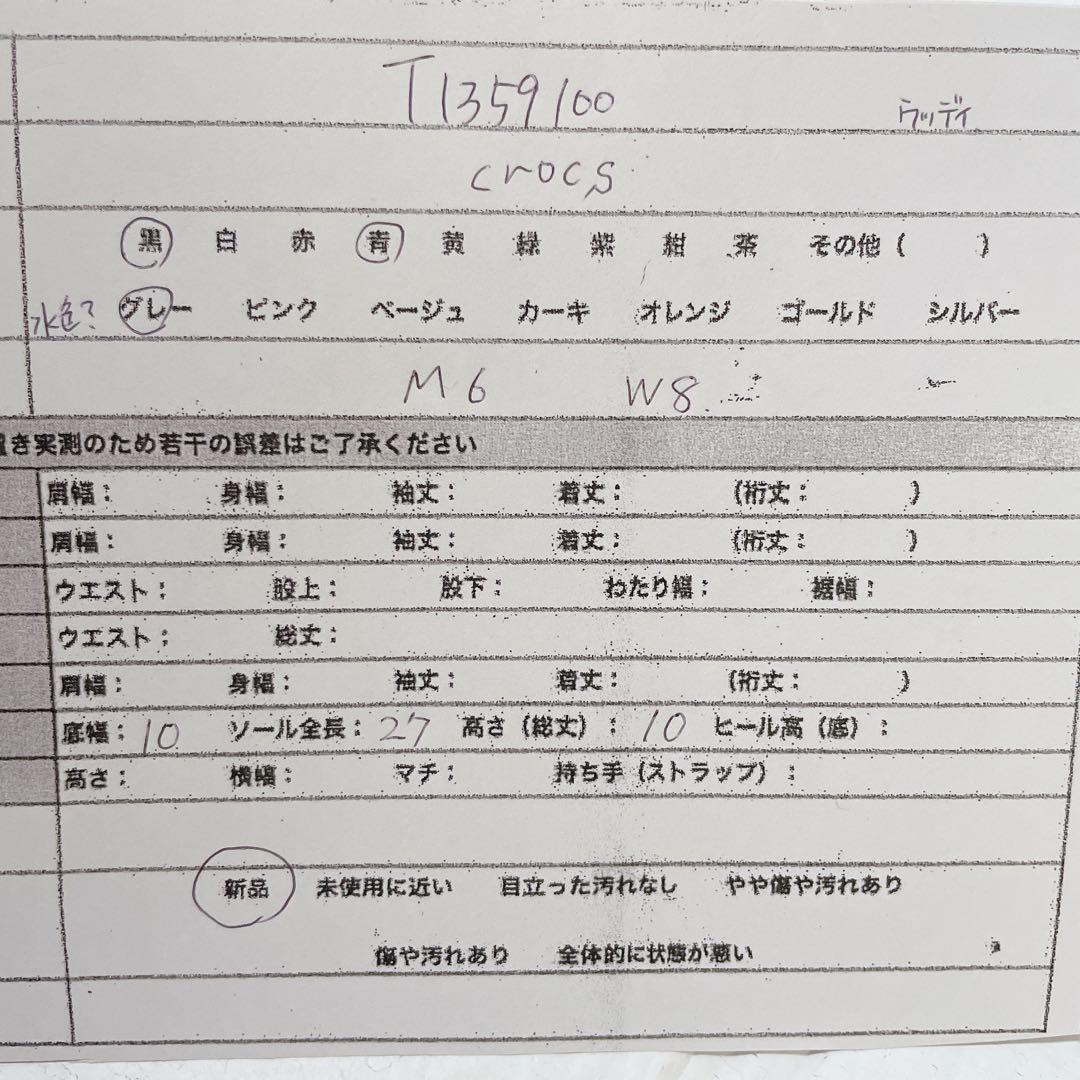 T1359100 ウッディ
crocs
黒 白 赤 青 黄 緑 紫 紺 茶 その他( )
水色? グレー ピンク ベージュ カーキ オレンジ ゴールド シルバー
M6 W8
置き実測のため若干の誤差はご了承ください
肩幅: 身幅: 袖丈: 着丈: (裄丈: )
肩幅: 身幅: 袖丈: 着丈: (裄丈: )
ウエスト: 股上: 股下: わたり幅: 裾幅:
ウエスト: 総丈:
肩幅: 身幅: 袖丈: 着丈: (裄丈: )
底幅: 10 ソール全長: 27 高さ(総丈): 10 ヒール高(底):
高さ: 横幅: マチ: 持ち手(ストラップ):
新品 未使用に近い 目立った汚れなし やや傷や汚れあり
傷や汚れあり 全体的に状態が悪い